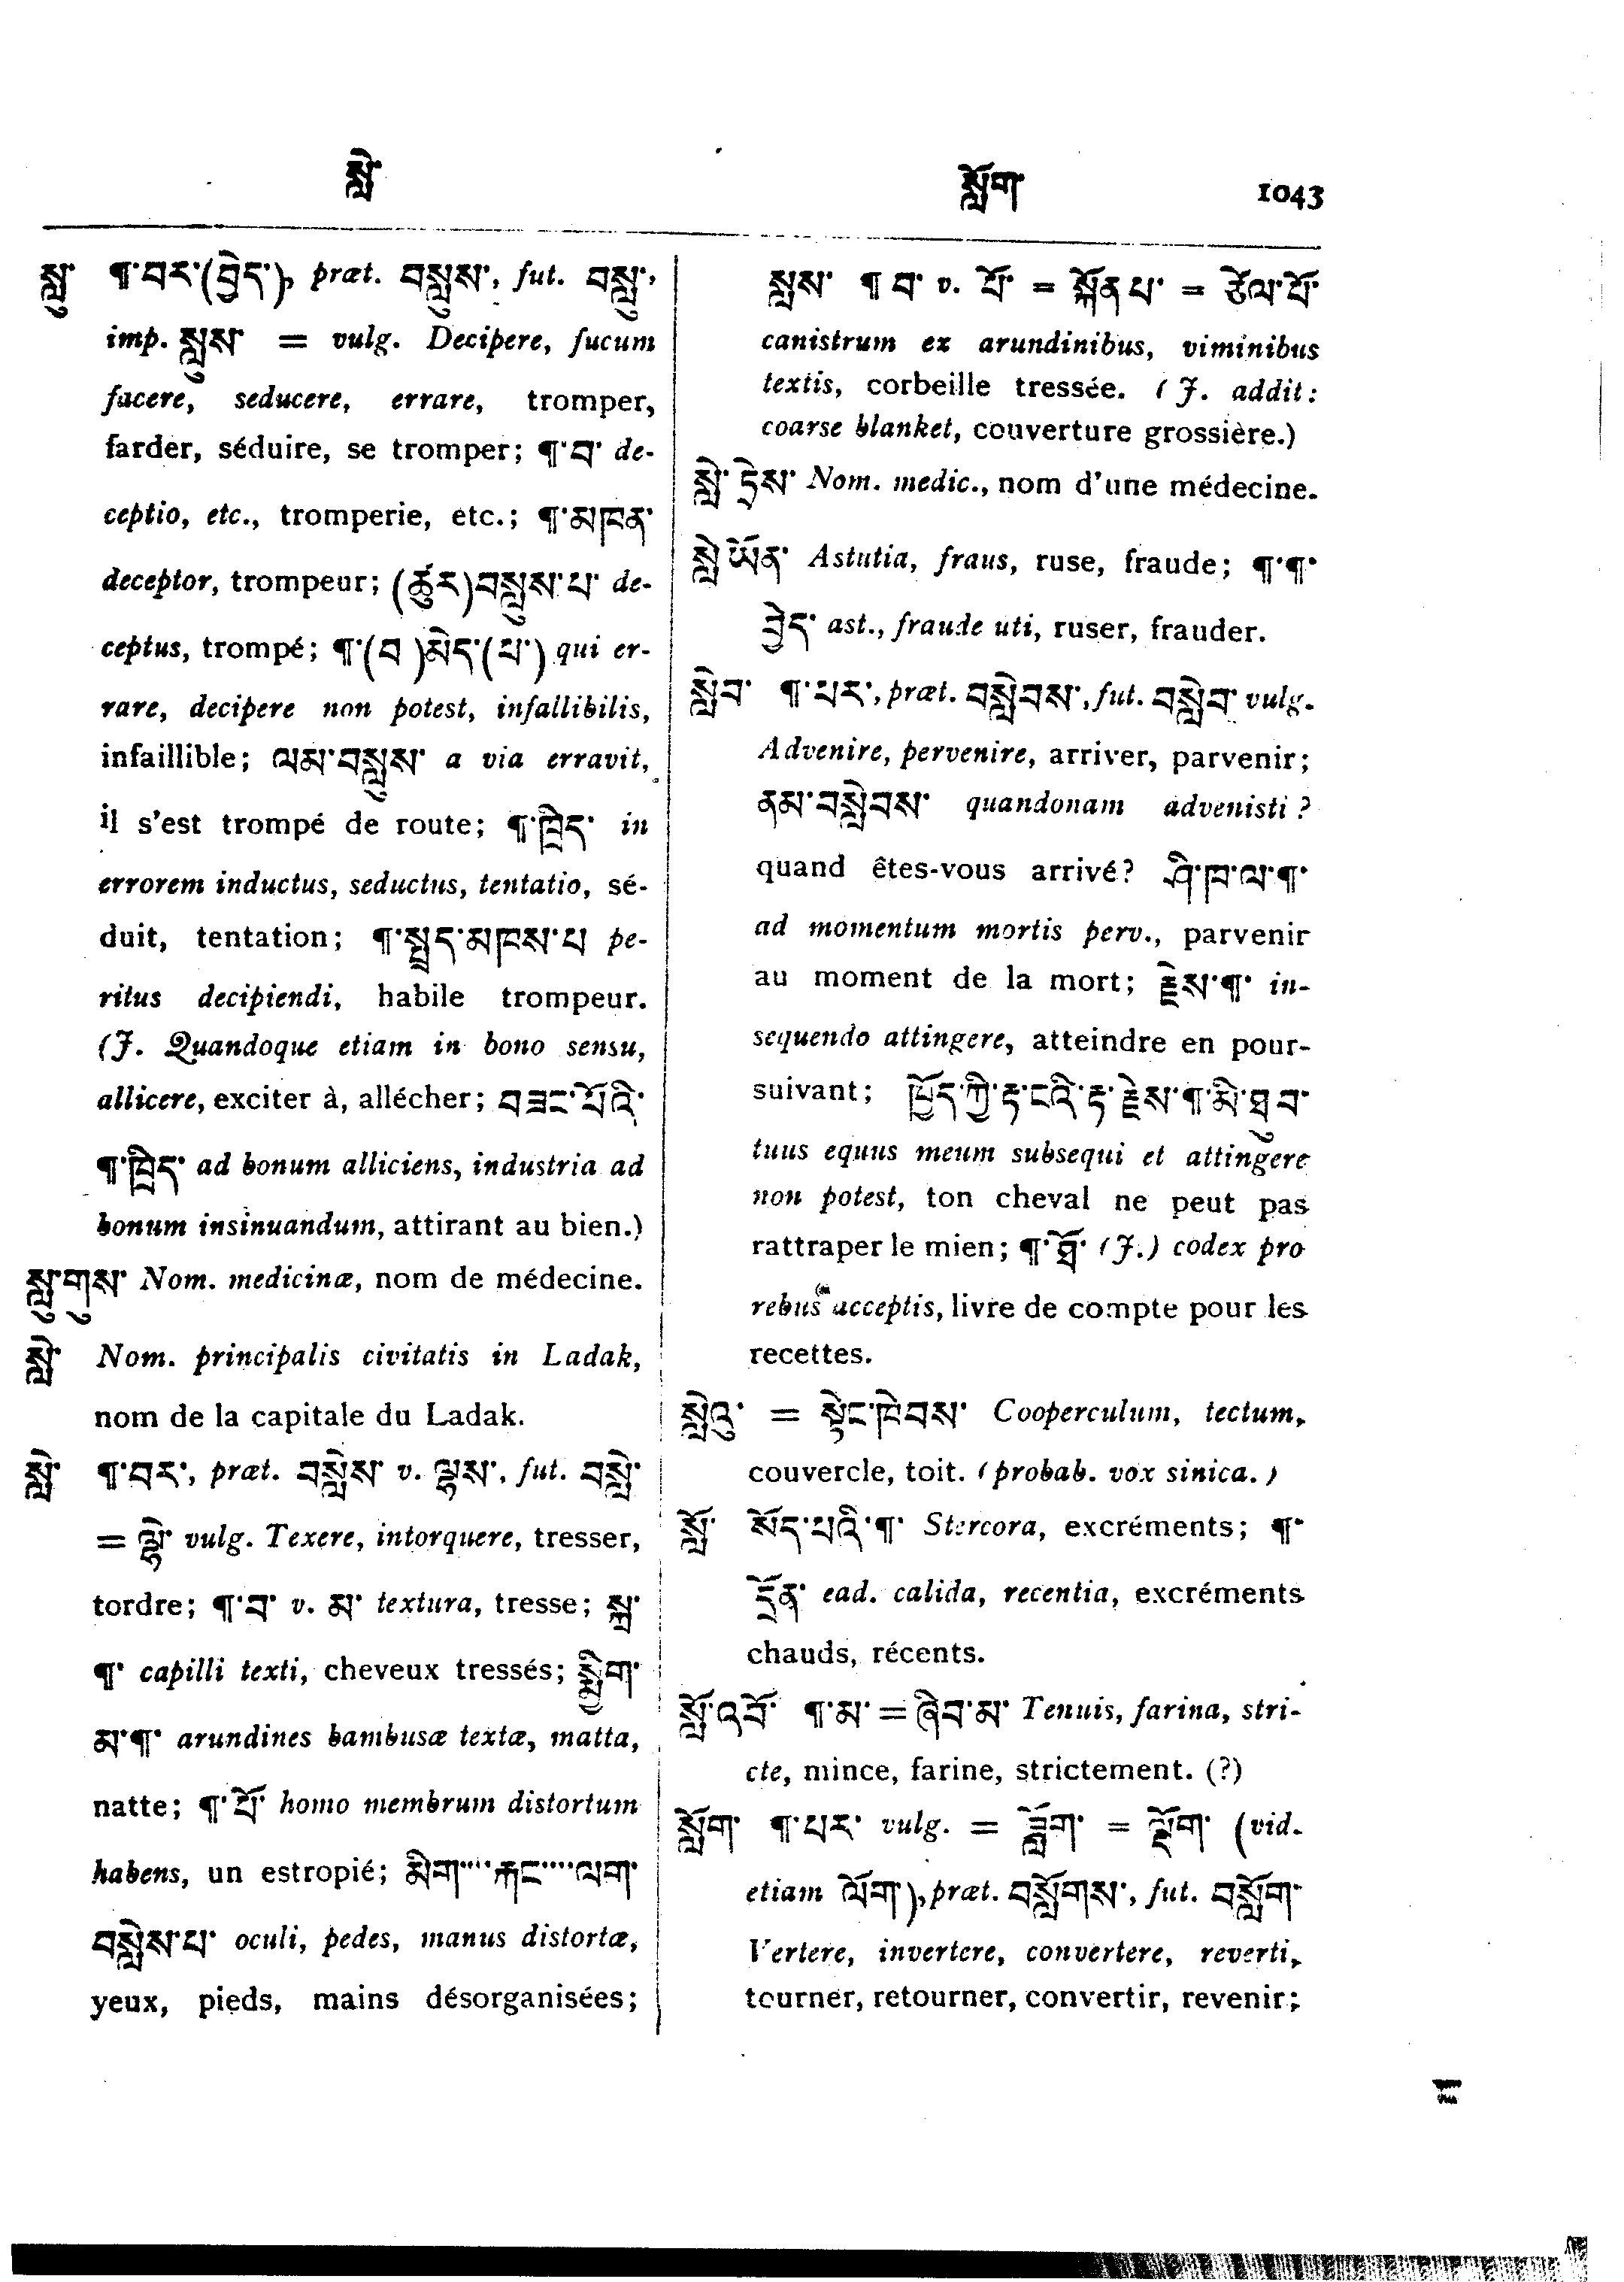 སླེ་
སློག་
1043
སླུ་ ¶་བར་(བྱེད་), præt. བསླུས་, fut. བསླུ་,
imp. སླུས་ = vulg. Decipere, fucum
facere, seducere, errare, tromper,
farder, séduire, se tromper; ¶་བ་ de-
ceptio, etc., tromperie, etc.; ¶་མཁན་
deceptor, trompeur; (ཚུར)བསླུས་པ་ de-
ceptus, trompé; ¶་(བ)མེད་(པ་) qui er-
rare, decipere non potest, infallibilis,
infaillible; ལམ་བསླུས་ a via erravit,
il s'est trompé de route; ¶་ཁྲིད་ in
errorem inductus, seductus, tentatio, sé-
duit, tentation; ¶་སླད་མཁས་པ pe-
ritus decipiendi, habile trompeur.
(J. Quandoque etiam in bono sensu,
allicere, exciter à, allécher; བཟང་པོའི་
¶་ཁྲིད་ ad bonum alliciens, industria ad
bonum insinuandum, attirant au bien.)
སླུ་གུས་ Nom. medicinæ, nom de médecine.
སླེ་ Nom. principalis civitatis in Ladak,
nom de la capitale du Ladak.
སླེ་ ¶་བར་, præt. བསླེས་ v. ལྷས་, fut. བསླེ་
= ལྷེ་ vulg. Texere, intorquere, tresser,
tordre; ¶་བ་ v. མ་ textura, tresse; སྐྲ་
¶་ capilli texti, cheveux tressés; སྨྱིག་
མ་¶་ arundines bambusæ textæ, matta,
natte; ¶་པོ་ homo membrum distortum
habens, un estropié; མིག་་་་རྐང་་་་ལག་
བསླེས་པ་ oculi, pedes, manus distortæ,
yeux, pieds, mains désorganisées;
སླས་ ¶བ་ v. པོ་ = སྐོནཔ་ = ཙེལ་པོ་
canistrum ex arundinibus, viminibus
textis, corbeille tressée. (J. addit:
coarse blanket, couverture grossière.)
སླེ་ཏྲེས་ Nom. medic., nom d'une médecine.
སླེ་ཡོན་ Astutia, fraus, ruse, fraude; ¶་¶་
བྱེད་ ast., fraude uti, ruser, frauder.
སླེབ་ ¶་པར་, præt. བསླེབས་, fut. བསླེབ་ vulg.
Advenire, pervenire, arriver, parvenir;
ནམ་བསླེབས་ quandonam advenisti?
quand êtes-vous arrivé? ཤི་ཁ་ལ་¶་
ad momentum mortis perv., parvenir
au moment de la mort; རྗེས་¶་ in-
sequendo attingere, atteindre en pour-
suivant; ཁྱོད་ཀྱི་རྟ་ངའི་རྟ་རྗེས་¶་མི་ཐུབ་
tuus equus meum subsequi et attingere
non potest, ton cheval ne peut pas
rattraper le mien; ¶་ཐོ་ (J.) codex pro
rebus acceptis, livre de compte pour les
recettes.
སླེའུ་ = སྟེང་ཁེབས་ Cooperculum, tectum,
couvercle, toit. (probab. vox sinica.)
སློ་ སོད་པའི་¶་ Stercora, excréments; ¶་
དྲོན་ ead. calida, recentia, excréments
chauds, récents.
སློ་འབོ་ ¶་མ་ = ཞིབ་མ་ Tenuis, farina, stri-
cte, mince, farine, strictement. (?)
སློག་ ¶་པར་ vulg. = ཟློག་ = ལྡོག་ (vid.
etiam ལོག་), præt. བསློགས་, fut. བསློག་
Vertere, invertere, convertere, reverti,
tourner, retourner, convertir, revenir;